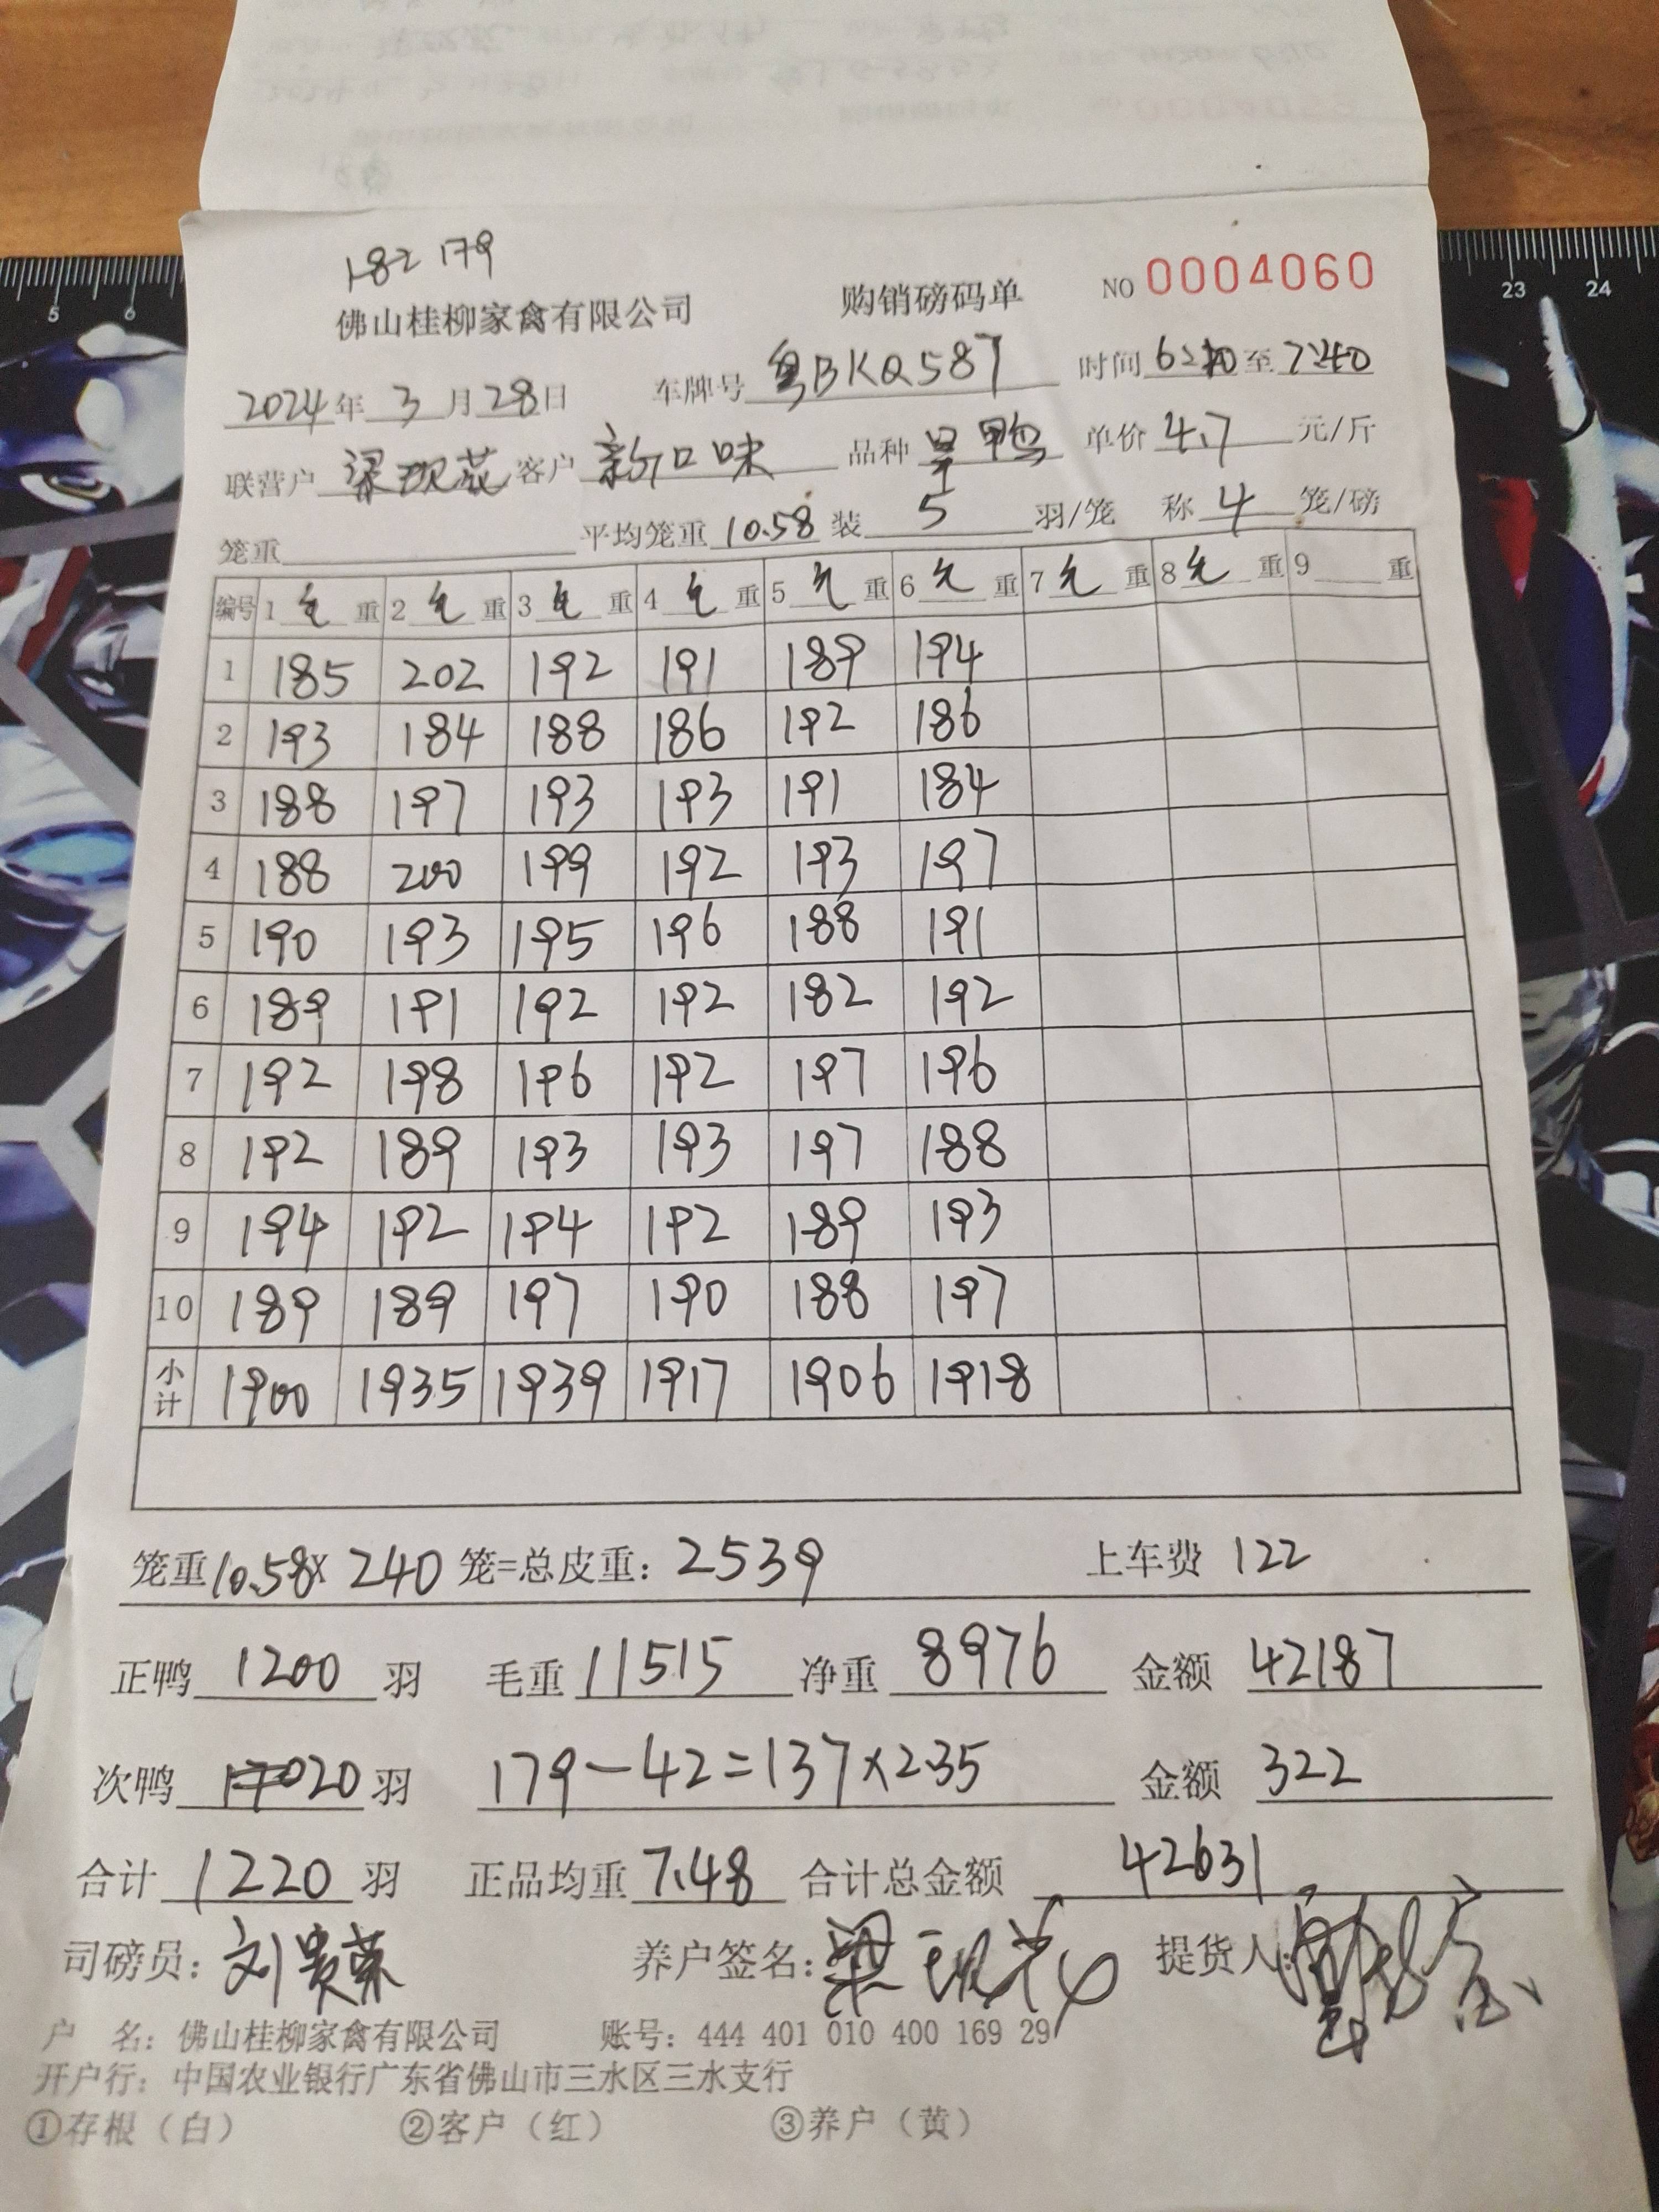 182 179
佛山桂柳家禽有限公司 购销磅码单 NO 0004060
2024年 3 月 28日 车牌号 粤BKQ587 时间 至 7:40
联营户 梁现花 客户 新口味 品种 旱鸭 单价 4.7 元/斤
笼重 平均笼重 10.58 装 5 羽/笼 称 4 笼/磅
编号 1 毛 重 2 毛 重 3 毛 重 4 毛 重 5 毛 重 6 毛 重 7 毛 重 8 毛 重 9 重
1 185 202 192 191 189 194
2 193 184 188 186 192 186
3 188 197 193 193 191 184
4 188 200 199 192 193 197
5 190 193 195 196 188 191
6 189 191 192 192 182 192
7 192 198 196 192 197 196
8 192 189 193 193 197 188
9 194 192 194 192 189 193
10 189 189 197 190 188 197
小计 1900 1935 1939 1917 1906 1918
笼重10.58× 240 笼=总皮重: 2539 上车费 122
正鸭 1200 羽 毛重 11515 净重 8976 金额 42187
次鸭 20 羽 179-42=137×2.35 金额 322
合计 1220 羽 正品均重 7.48 合计总金额 42631
司磅员: 刘贵荣 养户签名: 梁现花 提货人:
户 名: 佛山桂柳家禽有限公司 账号: 444 401 010 400 169 29
开户行: 中国农业银行广东省佛山市三水区三水支行
①存根（白） ②客户（红） ③养户（黄）
5 6 23 24